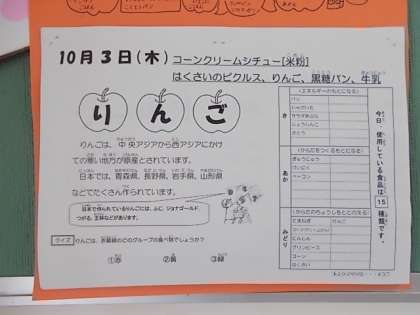 10月3日(木) コーンクリームシチュー[米粉]
はくさいのピクルス、りんご、黒糖パン、牛乳
りんご
りんごは、中央アジアから西アジアにかけ
ての寒い地方が原産とされています。
日本では、青森県、長野県、岩手県、山形県
などでたくさん作られています。
日本で作られているりんごには、ふじ、ジョナゴールド、
つがる、王林などがあります。
クイズ りんごは、赤黄緑のどのグループの食べ物でしょうか?
①赤 ②黄 ③緑
き
(エネルギーのもとになる)
パン
じゃがいも
さとう
あか
(からだをつくるもとになる)
ぎゅうにゅう
ベーコン
みどり
(からだのちょうしをととのえる)
たまねぎ
にんじん
グリンピース
コーン
はくさい
りんご
今日、使用している食品は
15
種類です。